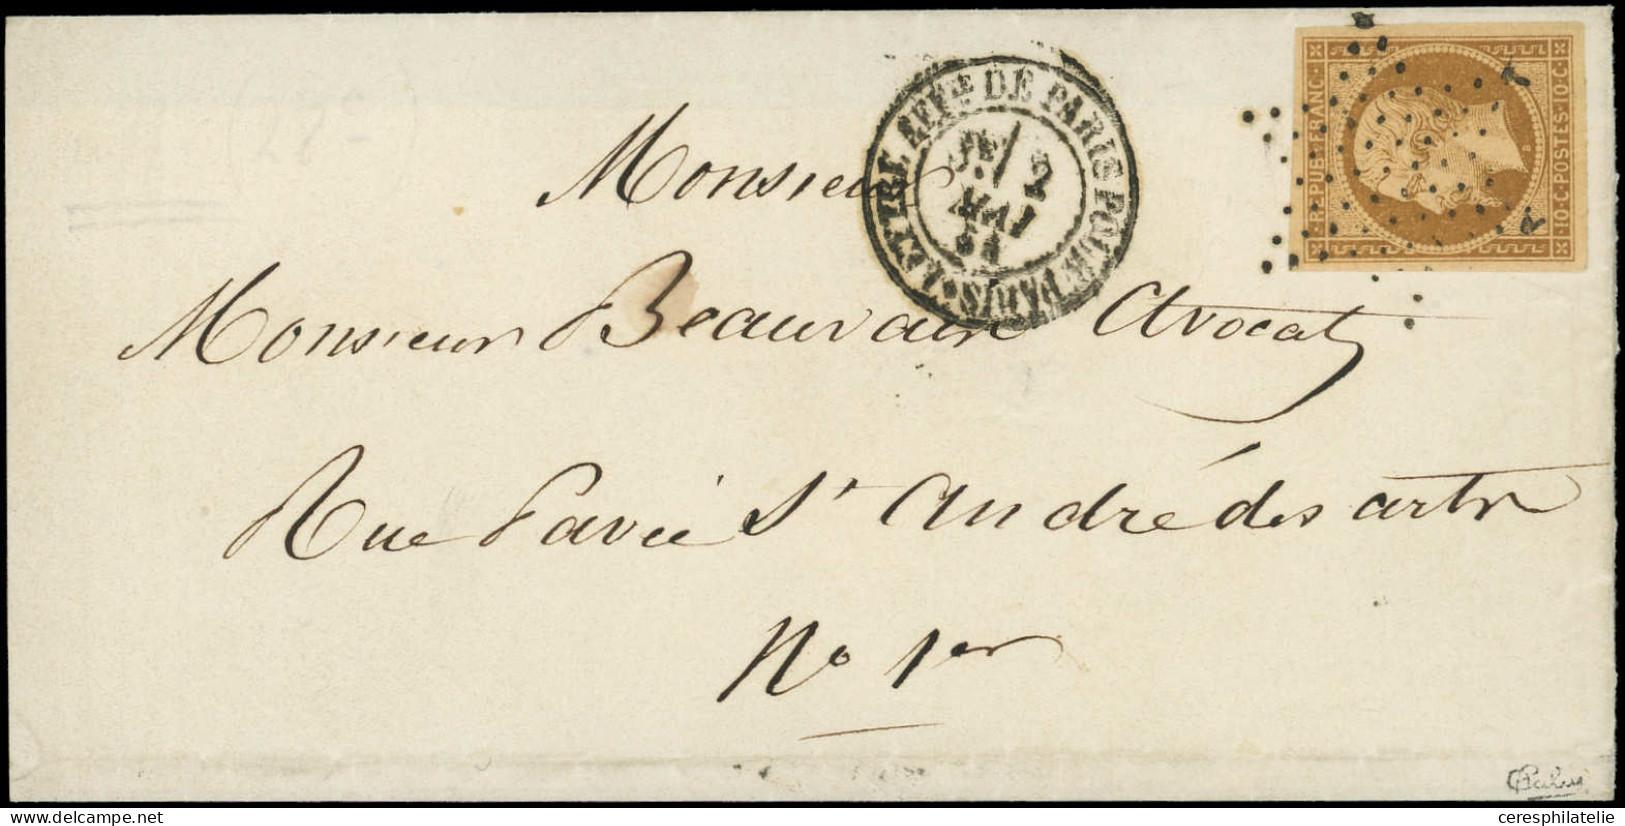 REPUB·FRANC·
10·C·POSTES·10·C·
B
LETTRE AFFIE DE PARIS POUR PARIS
2
MAI
Monsieur
Monsieur Beauvain Avocat
Rue Pavée St André des arts
No 1er
ceresphilatelie